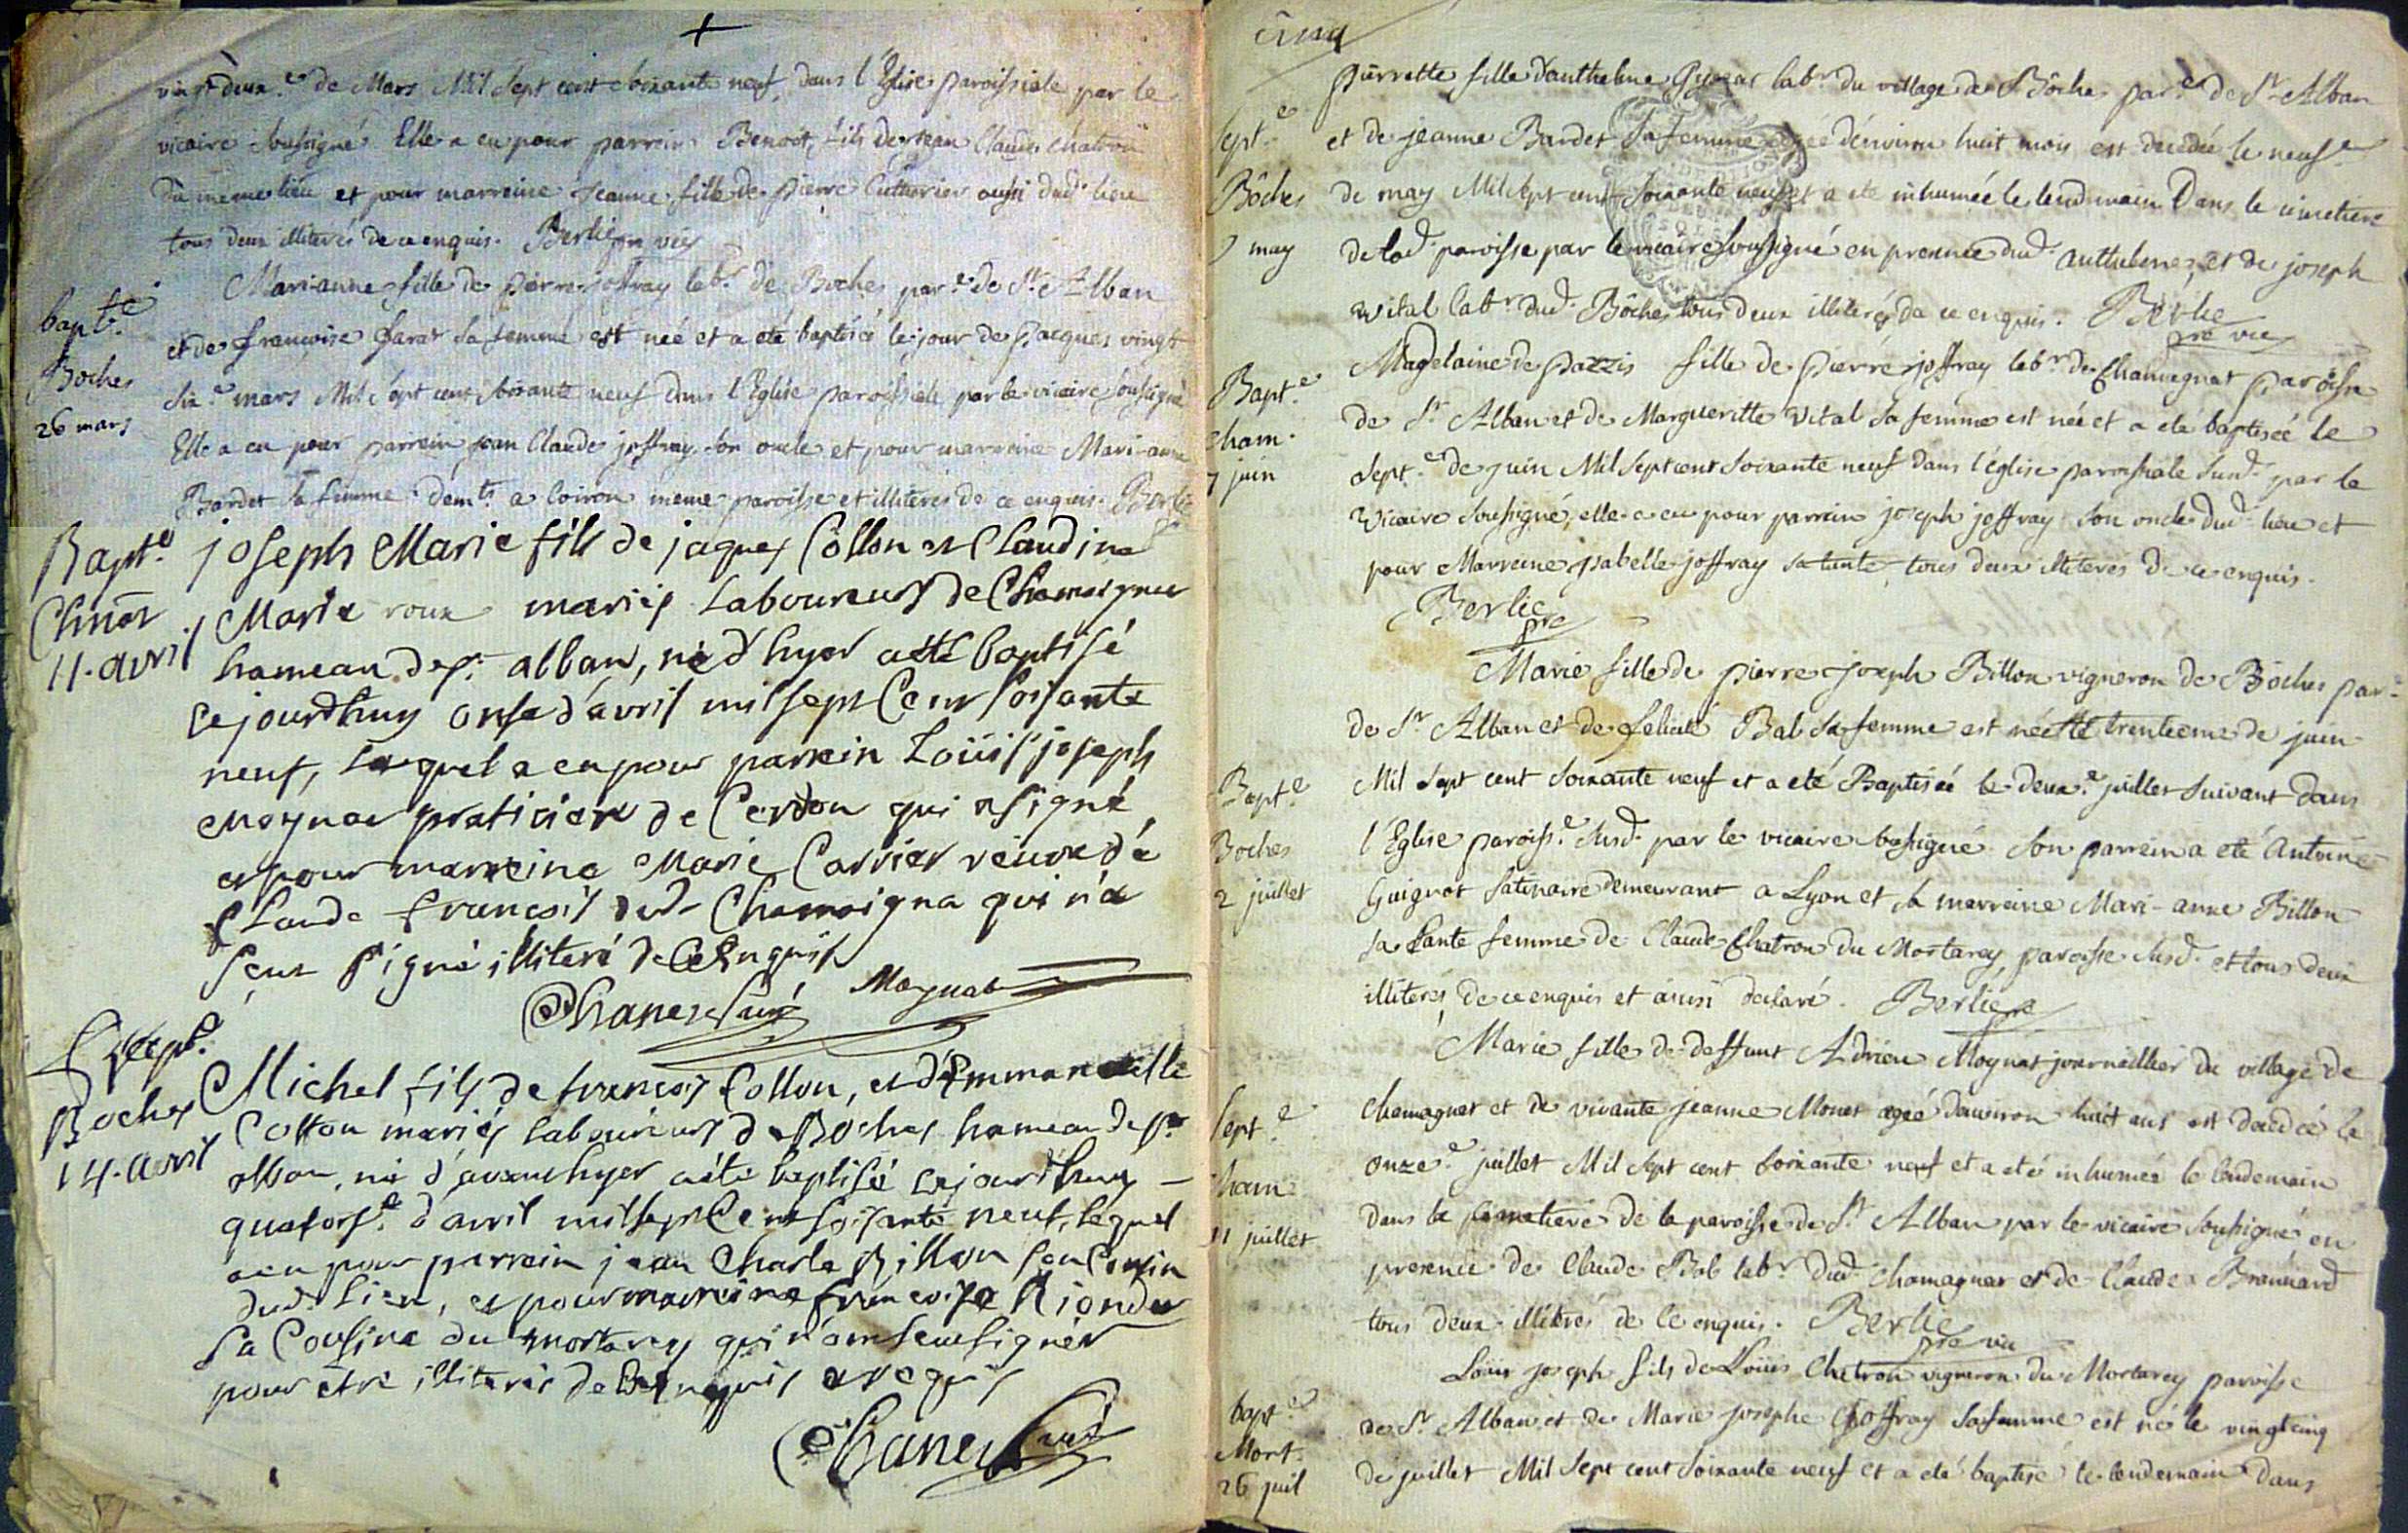 +
vingt deux.e de Mars Mil Sept cent soixante neuf dans l'Eglise paroissiale par le
vicaire soussigné Elle a eu pour parrein Benoot fils de jean Claude Chatron
du meme lieu et pour marreine jeanne fille de pierre Cutturier aussi dud. lieu
tous deux illiterés de ce enquis. Berlie pre vic
bapt.e
Boches
26 mars
Mari-anne fille de pierre joffray lab.r de Boches par.e de St Alban
et de francoise Sarar sa femme est née et a eté baptisée le jour de pacques vingt
six.e mars Mil sept cent soixante neuf dans l'Eglise paroissiale par le vicaire soussigné
Elle a eu pour parrein jean Claude joffray son oncle et pour marreine Mari-anne
Bardet sa femme demts a Coiron meme paroisse et illiterés de ce enquis. Berlie
Bapt.e
11. avril
joseph Marie fils de jaques Collon et Claudine
Marie roux mariés Laboureurs de Chamaignia
hameau de st alban, né d'hyer a été baptisé
cejourdhuy onse d'avril mil sept Cent soisante
neuf, Lequel a eu pour parrein Loüis joseph
Moynat praticien de Cerdon qui a signé,
et pour marreine Marie Carrier veuve de
Claude francois dud. Chamaigna qui n'a
sçeut signé illiteré de Ce Enquis
Chanel Curé Moynat
Bapt.e
Boches
14. avril
Michel fils de francois Collon, et d'Emmanuelle
Cotton mariés laboureurs de Boches hameau de st
alban, né d'avanthyer a été baptisé cejourdhuy
quatorse d'avril mil sept Cent soisante neuf, lequel
a eu pour parrein jean Charle Billion son Cousin
dud. Lieu, et pour marreine francoise Riondes
sa Cousine du mortarey qui n'ont sceu signér
pour être illiterés de Ce enquis et requis
Chanel Curé
Cinq
Sept.e
Bôches
9 may
pierrette fille d'anthelme Guynar lab.r du village de Bôches par.e de St Alban
et de jeanne Bardet sa femme agée d'environ huit mois est decedée le neuf.e
de may Mil Sept cent soixante neuf et a eté inhumée le lendemain Dans le cimetiere
de lad. paroisse par le vicaire soussigné en presence dud. anthelme, et de joseph
Vital lab.r dud. Bôches tous deux illiterés de ce enquis. Berlie
pre vic
Bapt.e
Cham.
7 juin
Magdelaine de pazzis fille de pierre joffray lab.r de Chamagnat paroisse
de St Alban et de Margueritte Vital sa femme est née et a eté baptisée le
Sept.e de juin Mil Sept cent soixante neuf dans l'église paroissiale susd. par le
Vicaire soussigné, elle a eu pour parrein joseph joffray son oncle dud. lieu et
pour Marreine jsabelle joffray sa tante, tous deux illiterés de ce enquis.
Berlie
pre
Bapt.e
Boches
2 juillet
Marie fille de pierre joseph Billon vigneron de Bôches par.e
de St Alban et de felicité Bal sa femme est née le trentieme de juin
Mil Sept cent soixante neuf et a eté Baptisée le deux.e juillet suivant dans
l'Eglise paroiss.e susd. par le vicaire soussigné. Son parrein a eté Antoine
Guignot satinaire demeurant a Lyon et sa marreine Mari-anne Billon
sa tante femme de Claude Chatron du Mortarey, paroisse susd. et tous deux
illiterés de ce enquis et ainsi declaré. Berlie pre
Sept.e
Cham.
11 juillet
Marie fille de deffunt Adrien Moynat journallier du village de
Chamagnat et de vivante jeanne Monet agée d'environ huit ans est decedée le
onze.e juillet Mil Sept cent soixante neuf et a eté inhumée le lendemain
dans le cimetiere de la paroisse de St Alban par le vicaire soussigné en
presence de Claude Bal lab.r dud. Chamagnat et de Claude Brannard
tous deux illiterés de ce enquis. Berlie
pre vic
bapt.e
Mort.
26 juil
Louis joseph fils de Louis Chatron vigneron du Mortarey paroisse
de St Alban et de Marie josephe Joffray sa femme est né le vingt cinq
de juillet Mil Sept cent soixante neuf et a eté baptisé le lendemain dans